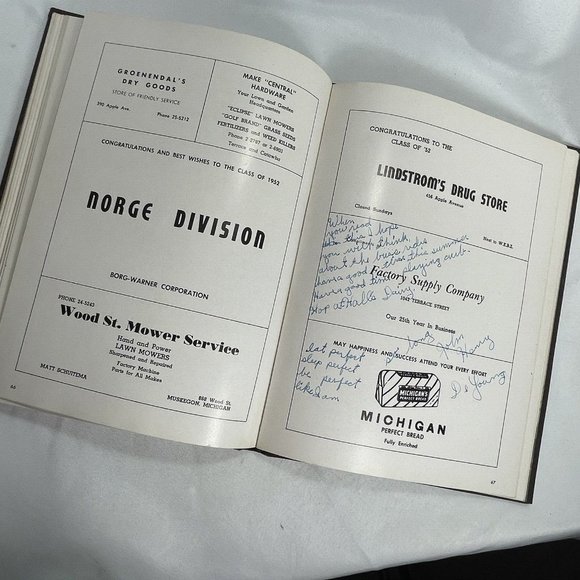 GROENENDAL'S
DRY GOODS
STORE OF FRIENDLY SERVICE
390 Apple Ave. Phone 25-5212
MAKE "CENTRAL"
HARDWARE
Your Lawn and Garden
Headquarters
"ECLIPSE" LAWN MOWERS
"GOLF BRAND" GRASS SEEDS
FERTILIZERS and WEED KILLERS
Phone
Terrace and Catawba
CONGRATULATIONS AND BEST WISHES TO THE CLASS OF 1952
NORGE DIVISION
BORG-WARNER CORPORATION
PHONE 24-5243
Wood St. Mower Service
Hand and Power
LAWN MOWERS
Sharpened and Repaired
Factory Machine
Parts for All Makes
MATT SCHUTEMA
888 Wood St.
MUSKEGON, MICHIGAN
66
CONGRATULATIONS TO THE
CLASS OF '52
LINDSTROM'S DRUG STORE
416 Apple Avenue
Closed Sundays Next to
When
you read
this I hope
you with think
about the
have a good this summer
Have a good time playing
Hop at Halls Dairy.
Factory Supply Company
1042 TERRACE STREET
Our 25th Year In Business
John
MAY HAPPINESS AND SUCCESS ATTEND YOUR EVERY EFFORT
eat perfect
sleep perfect
be perfect
like I am
De Young
MICHIGAN'S
PERFECT BREAD
MICHIGAN
PERFECT BREAD
Fully Enriched
67